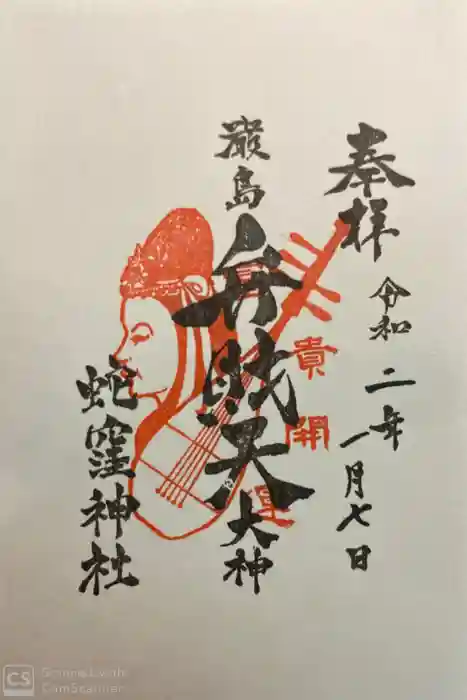 奉拝
令和二年一月七日
貴
開
運
厳島
弁財天
大神
蛇窪神社
CS Scanned with
CamScanner